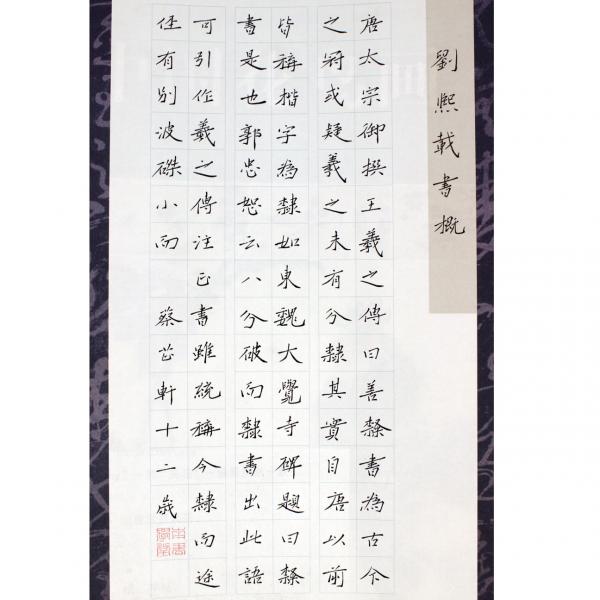 劉熙載書概
唐太宗御撰王羲之傳曰善隸書為古今
之冠或疑羲之未有分隸其實自唐以前
皆稱楷字為隸如東魏大覺寺碑題曰隸
書是也郭忠恕云八分破而隸書出此語
可引作羲之傳注正書雖統稱今隸而途
径有別波磔小而 蔡芷軒十二歲